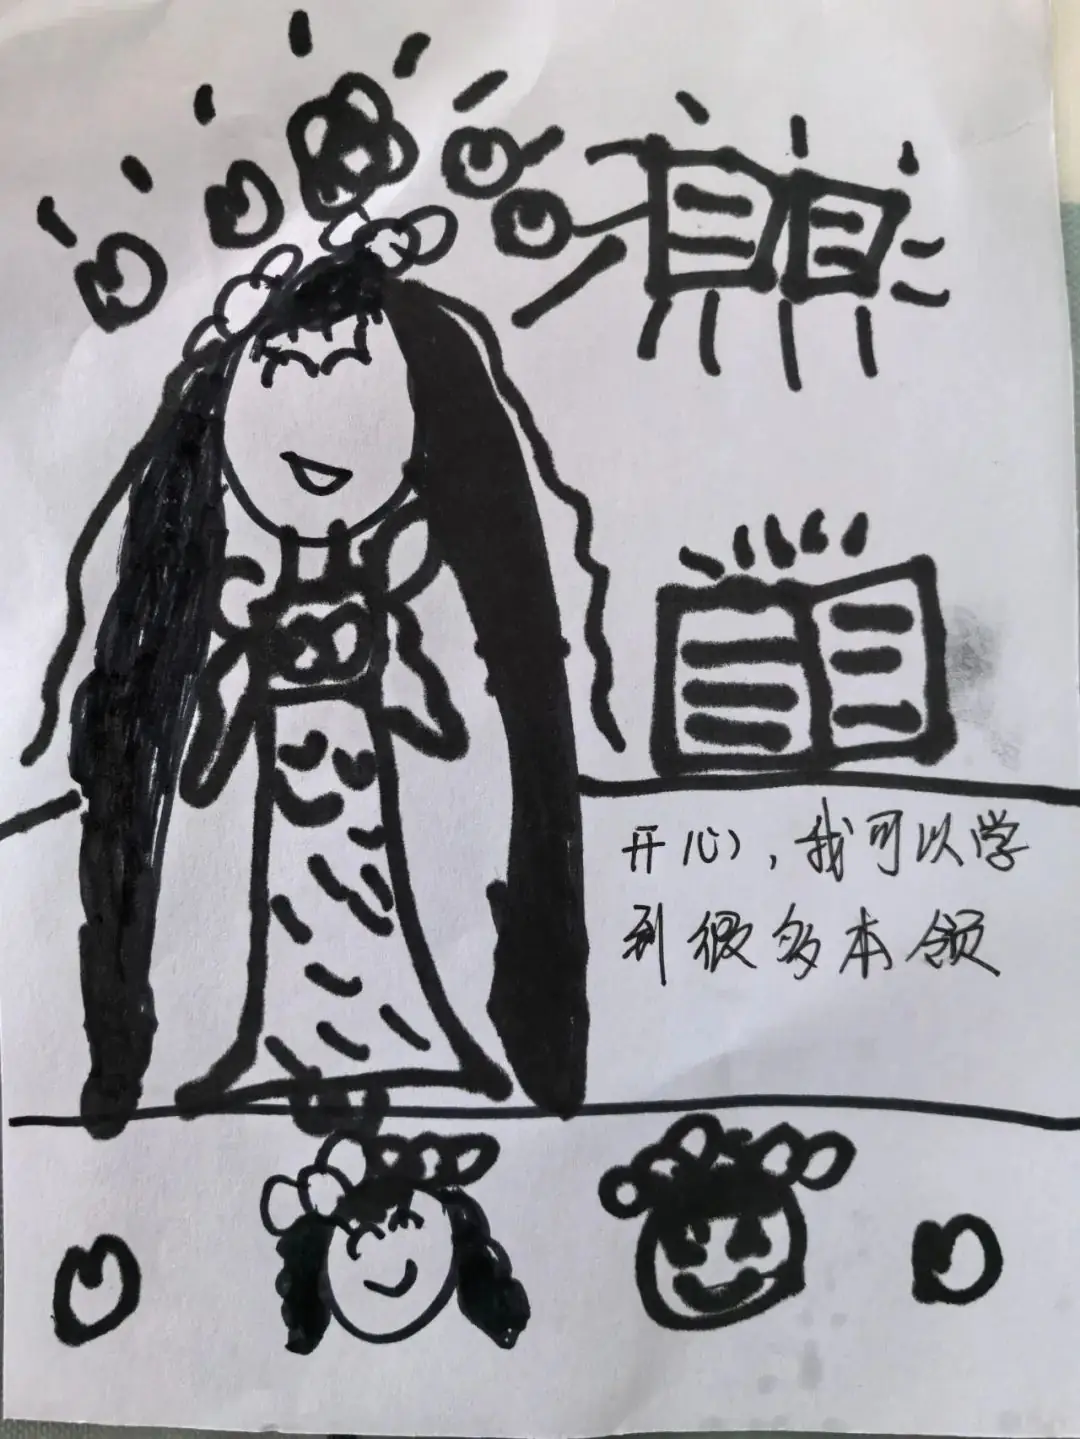 开心，我可以学
到很多本领